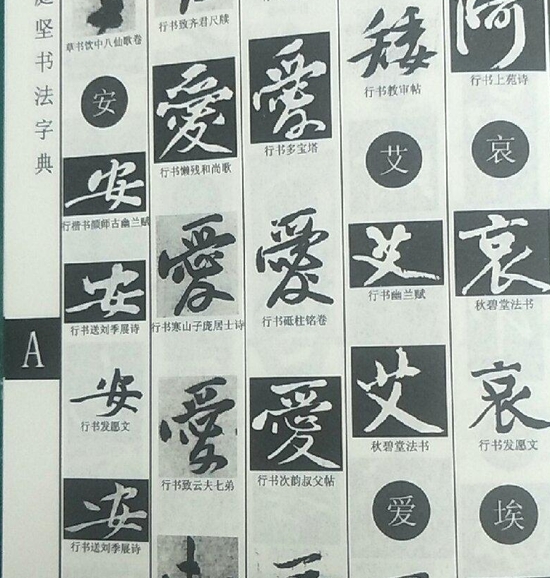 阿
行书上苑诗
哀
哀
秋碧堂法书
哀
行书发愿文
埃
矮
行书教审帖
艾
艾
行书幽兰赋
艾
秋碧堂法书
爱
愛
行书多宝塔
愛
行书砥柱铭卷
愛
行书次韵叔父帖
行书致齐君尺牍
愛
行书懒残和尚歌
愛
行书寒山子庞居士诗
愛
行书致云夫七弟
草书饮中八仙歌卷
安
安
行楷书颜师古幽兰赋
安
行书送刘季展诗
安
行书发愿文
安
行书送刘季展诗
庭坚书法字典
A